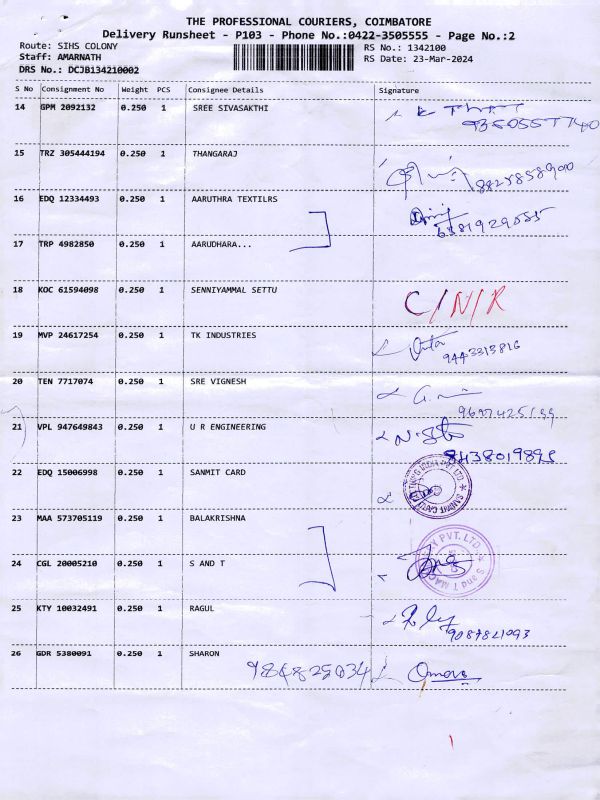 THE PROFESSIONAL COURIERS, COIMBATORE
Delivery Runsheet - P103 - Phone No.:0422-3505555 - Page No.:2
Route: SIHS COLONY RS No.: 1342100
Staff: AMARNATH RS Date: 23-Mar-2024
DRS No.: DCJB134210002
S No Consignment No Weight PCS Consignee Details Signature
14 GPM 2092132 0.250 1 SREE SIVASAKTHI
15 TRZ 305444194 0.250 1 THANGARAJ
16 EDQ 12334493 0.250 1 AARUTHRA TEXTILRS
17 TRP 4982850 0.250 1 AARUDHARA...
18 KOC 61594098 0.250 1 SENNIYAMMAL SETTU C/N/R
19 MVP 24617254 0.250 1 TK INDUSTRIES
9443313816
20 TEN 7717074 0.250 1 SRE VIGNESH
21 VPL 947649843 0.250 1 U R ENGINEERING
22 EDQ 15006998 0.250 1 SANMIT CARD
23 MAA 573705119 0.250 1 BALAKRISHNA
24 CGL 20005210 0.250 1 S AND T
25 KTY 10032491 0.250 1 RAGUL
26 GDR 5380091 0.250 1 SHARON